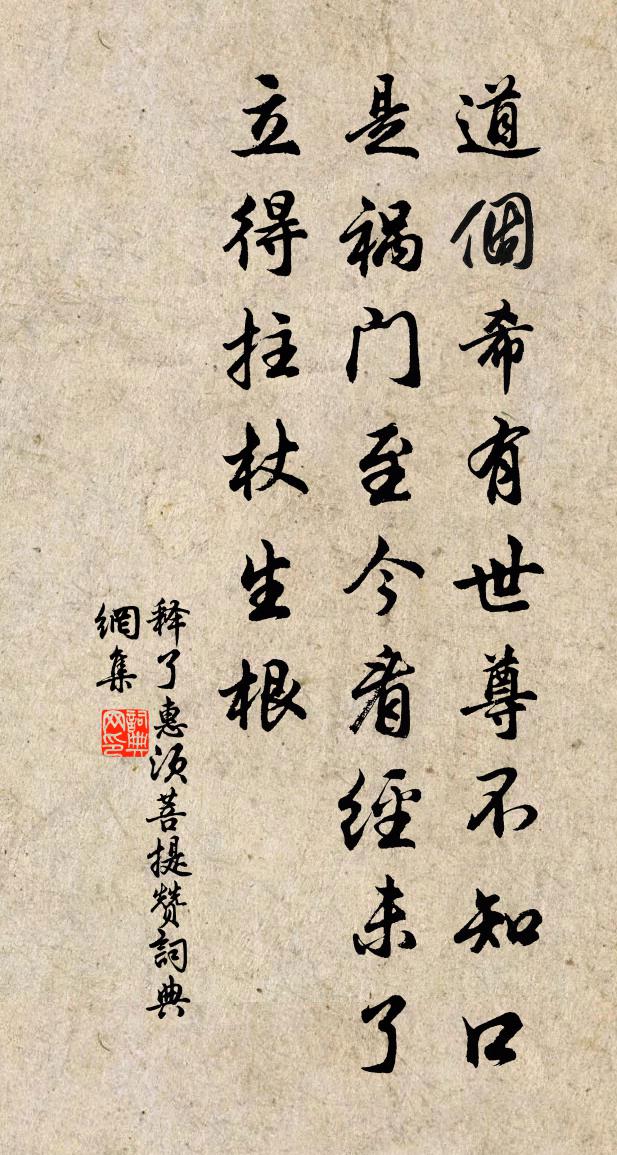 道個希有世尊不知口
是祸门至今看經未了
立得拄杖生根
释了惠须菩提赞詞典
網集
詞典网印